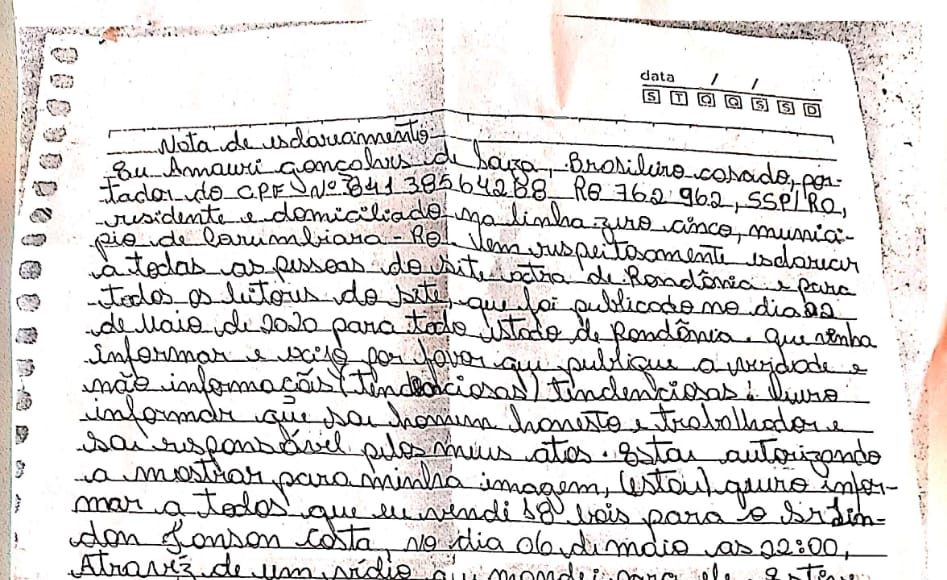 data / /
S T Q Q S S D
Nota de esclarecimento
Eu Amauri gonçalves de Souza, Brasileiro casado, por-
tador do CPF Nº 841 38564288 RG 762 962, SSP/RO,
residente e domiciliado na linha zero cinco, munici-
pio de Corumbiara - RO. Vem respeitosamente esclarecer
a todas as pessoas do site extra de Rondônia e para
todos os leitores do site, que foi publicado no dia 22
de Maio de 2020 para todo estado de Rondônia. que venha
informar e exijo por favor que publique a verdade e
não informação (Tendenciosas) tendenciosas e quero
informar que sou homem honesto e trabalhador e
sou responsável pelos meus atos. Estou autorizando
a mostrar para minha imagem, (estou) quero infor-
mar a todos que eu vendi 18 bois para o Sr
don Jonson Costa, no dia 06 de maio as 22:00,
Atravéz de um vídio que mandei para ele